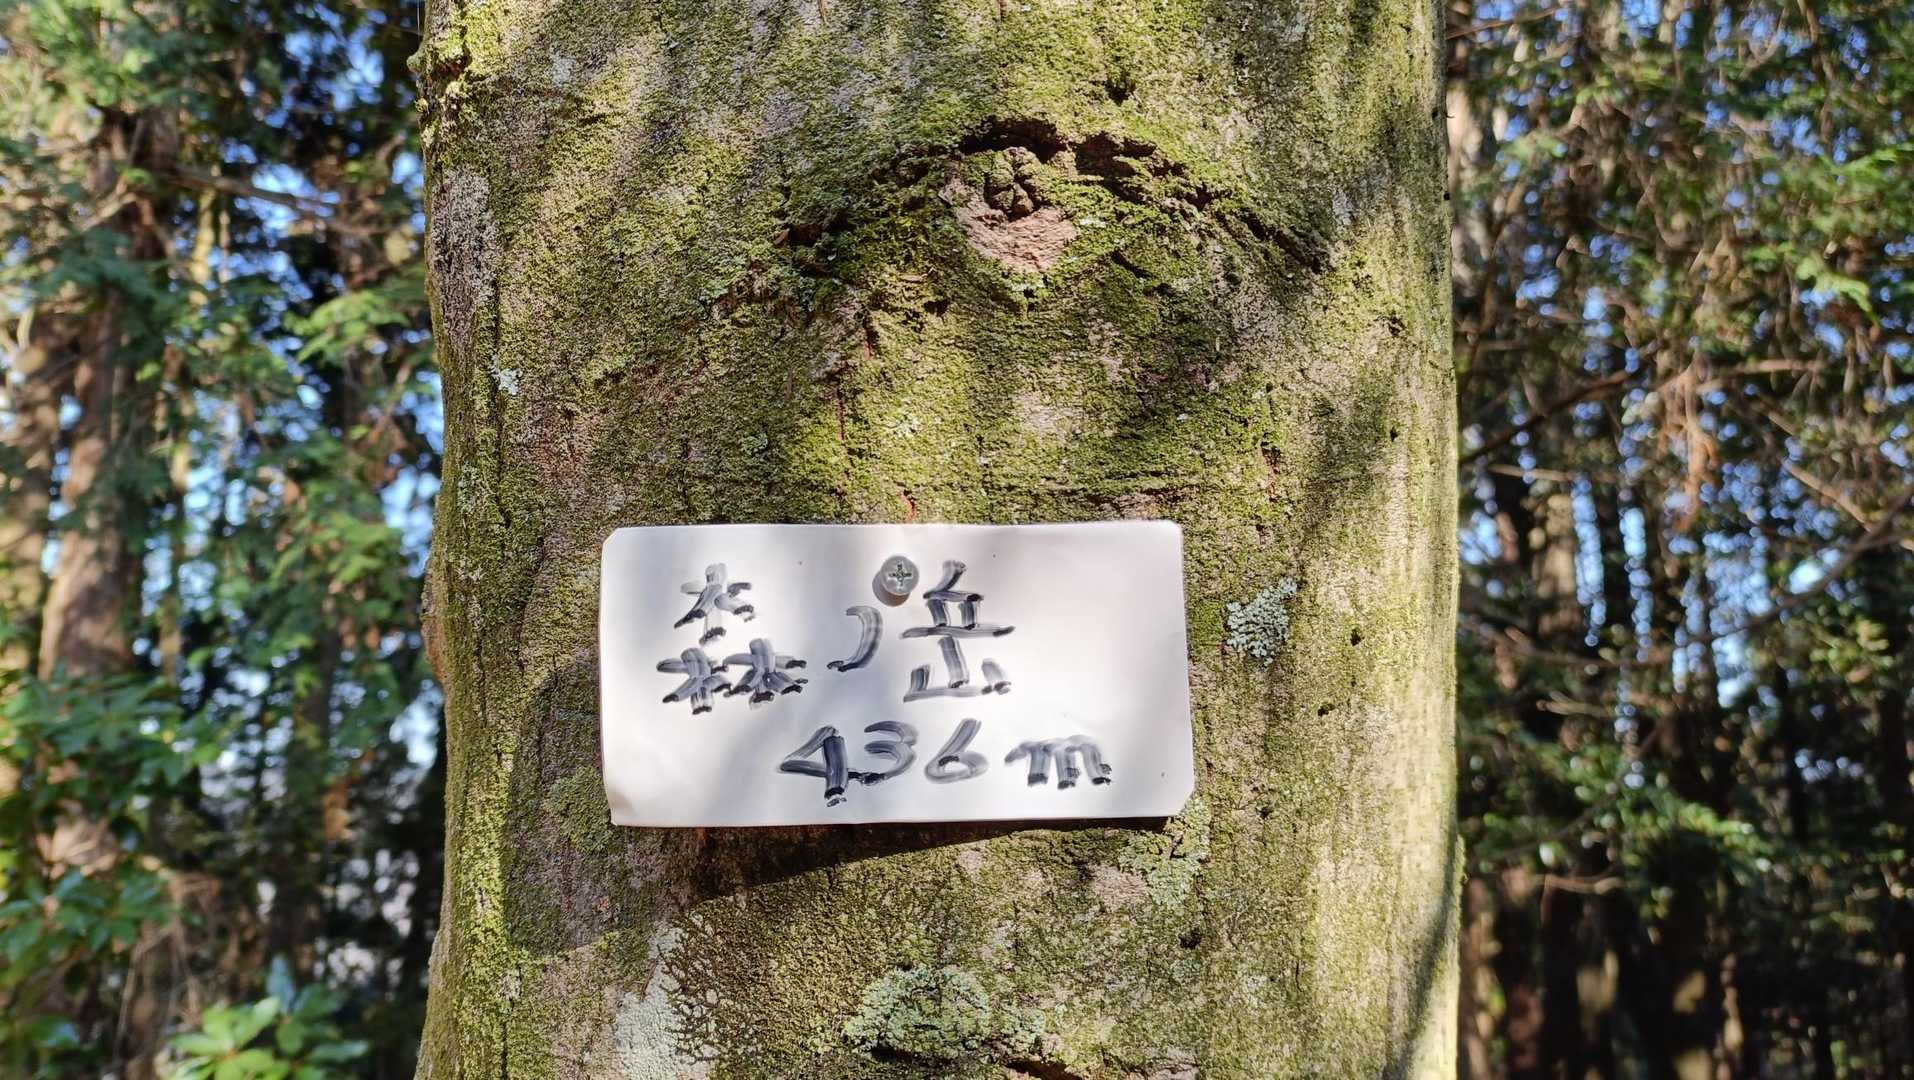 森ノ岳
436m